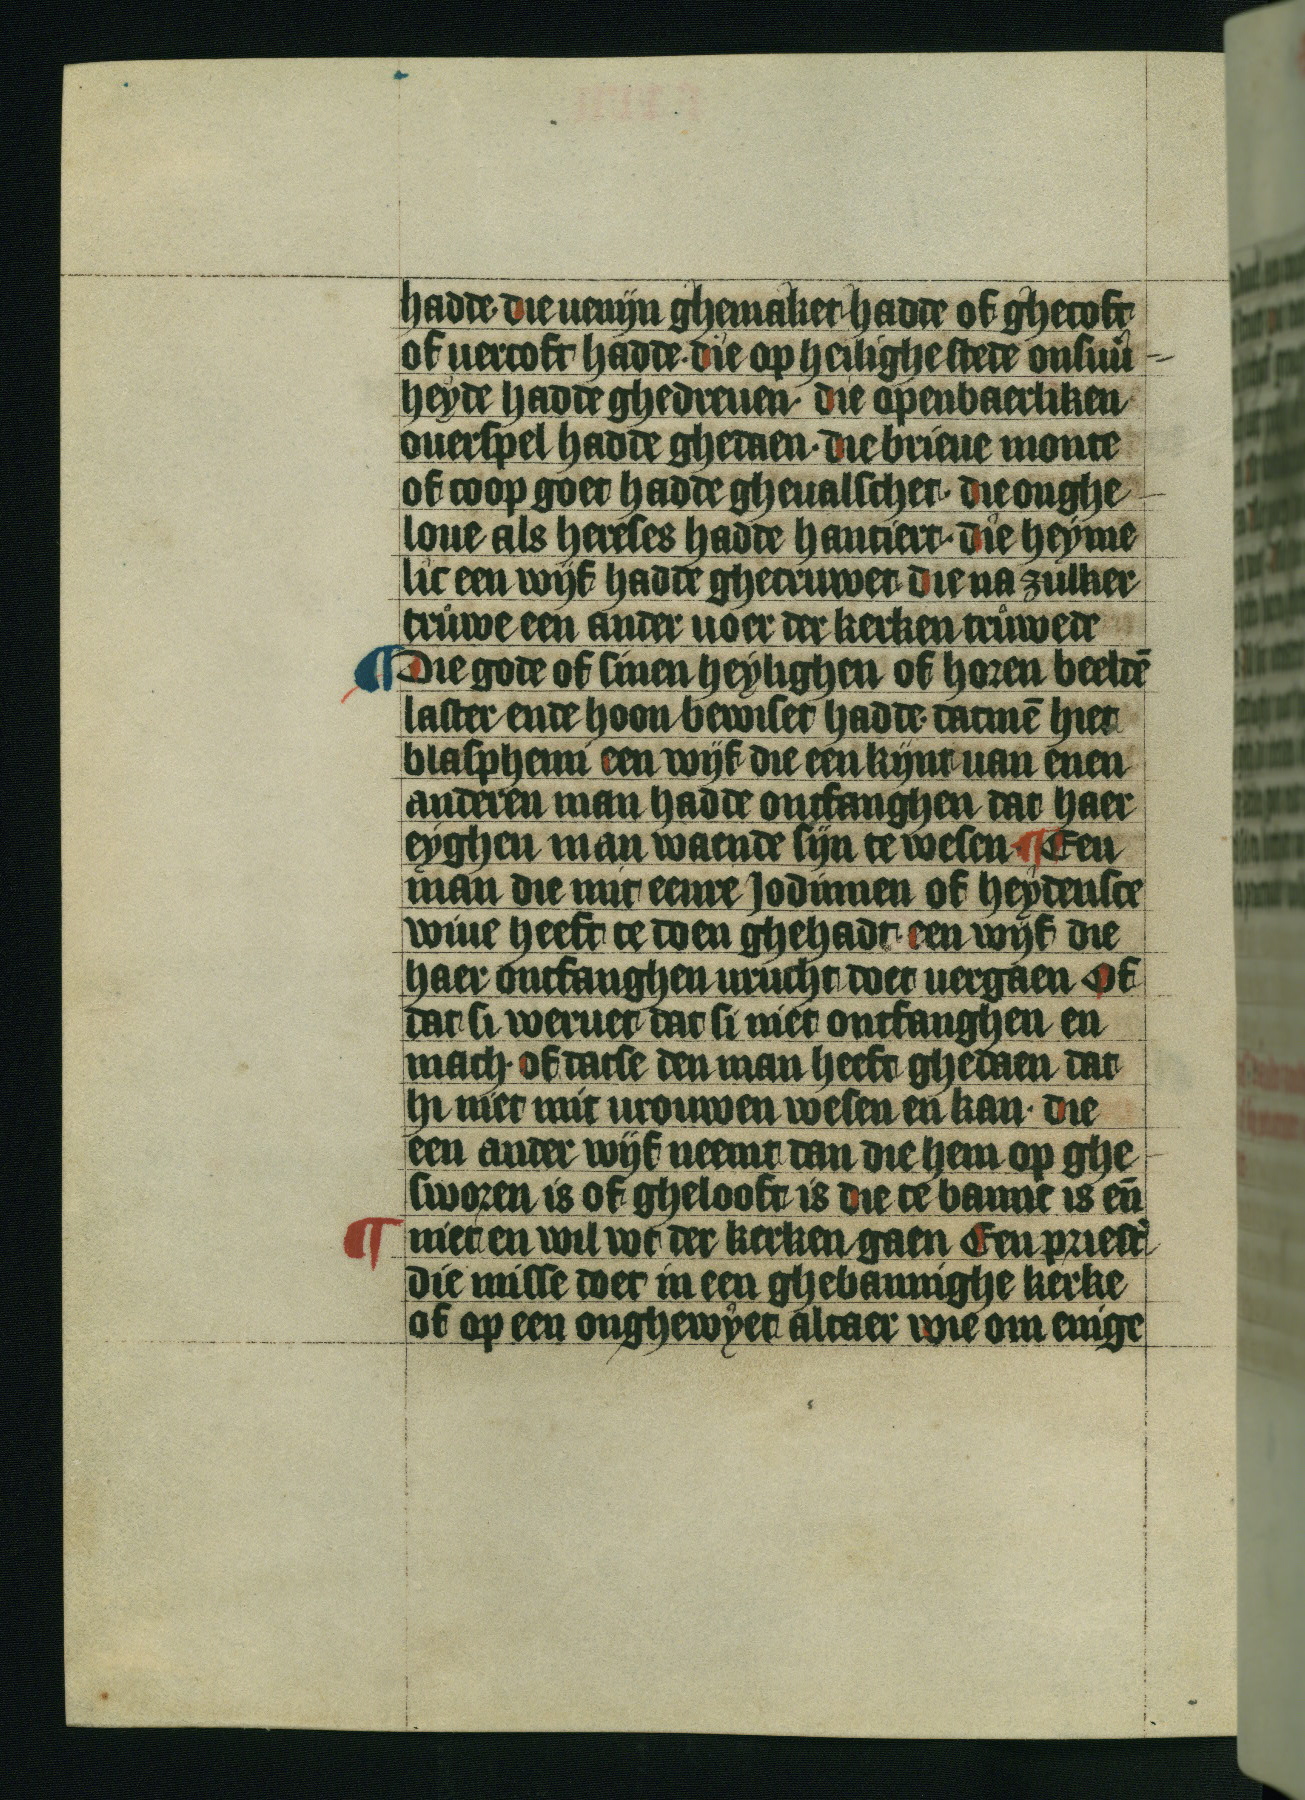 hadde· die uenijn ghemaket hadde of ghecoft
of uercoft hadde· die op heilighe stede onsuuͥ-
heyde hadde ghedreuen· die openbaerliken
ouerspel hadde ghedaen· die brieue monte
of coop goet hadde gheualschet· die onghe
loue als hereses hadde hantiert· die heyme
lic een wijf hadde ghetruwet die na zulker
trůwe een ander uoer der kerken trůwede
¶ Die gode of sinen heylighen of horen beeldē
laster ende hoon bewiset hadde· datmē hiet
blasphemi een wijf die een kijnt uan enen
anderen man hadde ontfanghen dat haer
eyghen man waende sijn te wesen ¶ Een
man die mit eenre Jodinnen of heydensce
wiue heeft te doen ghehadt· een wijf die
haer ontfanghen urucht doet uergaen Of
dat si weruet dat si niet ontfanghen en
mach· of datse den man heeft ghedaen dat
hi niet mit urouwen wesen en kan· die
een ander wijf neemt dan die hem op ghe
sworen is of ghelooft is die te banne is en̄
¶ niet en wil wt der kerken gaen Een priest᷑
die misse doet in een ghebannighe kerke
of op een onghewyet altaer wie om enige